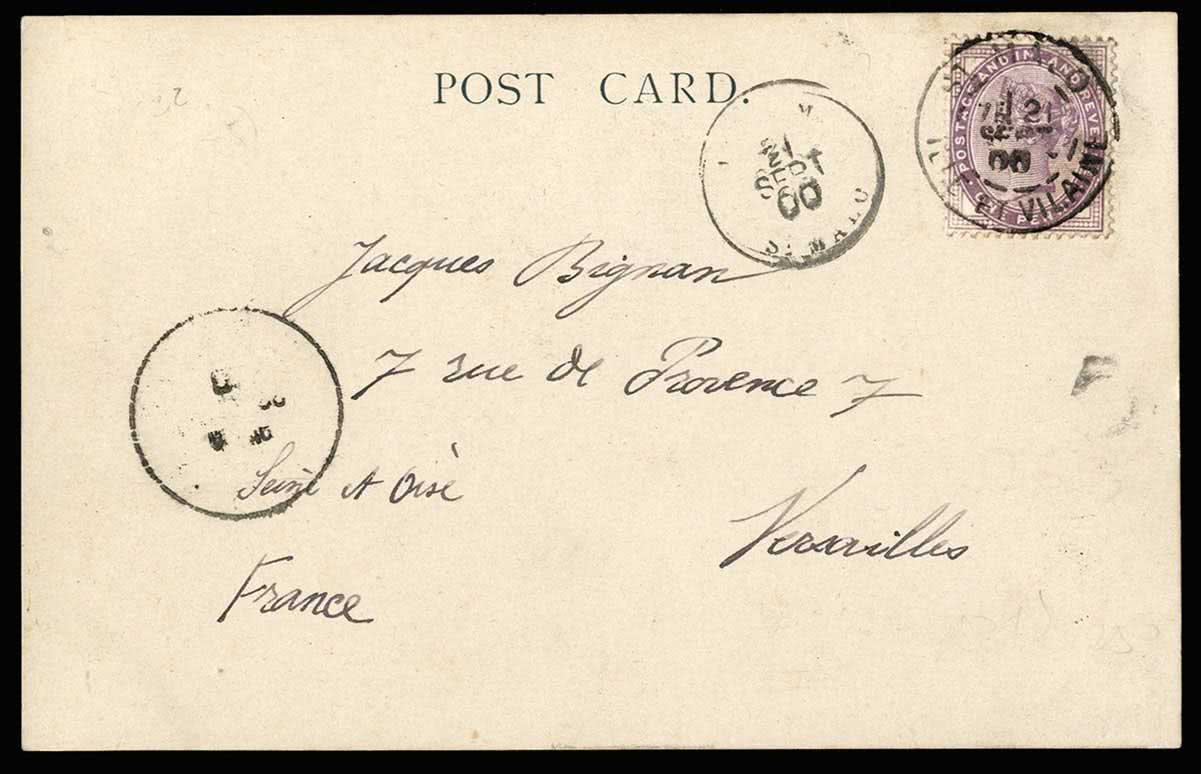 POST CARD.
POSTAGE AND INLAND REVENUE
21
SEPT
00
ILLE ET VILAINE
M
21
SEPT
00
ST MALO
Jacques Bignan
7 rue de Provence 7
Seine et Oise
Versailles
France